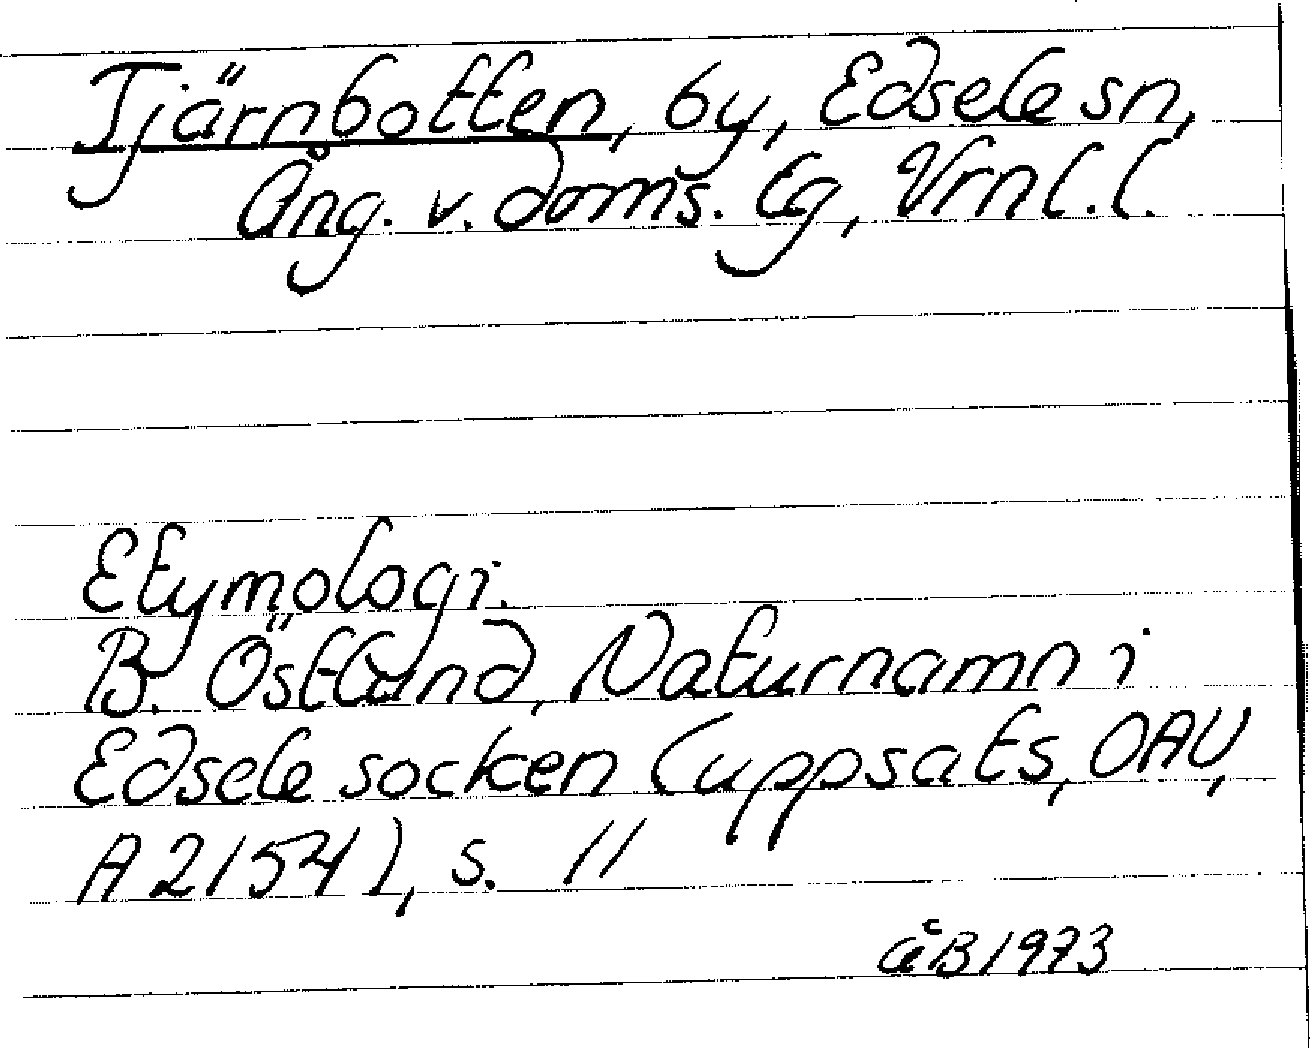 Tjärnbotten, by, Edsele sn,
Ång. v. doms. lg, Vrnl. l.
Etymologi.
B. Östlund, Naturnamn i
Edsele socken (uppsats, OAU,
A 2154), s. 11
åB 1973